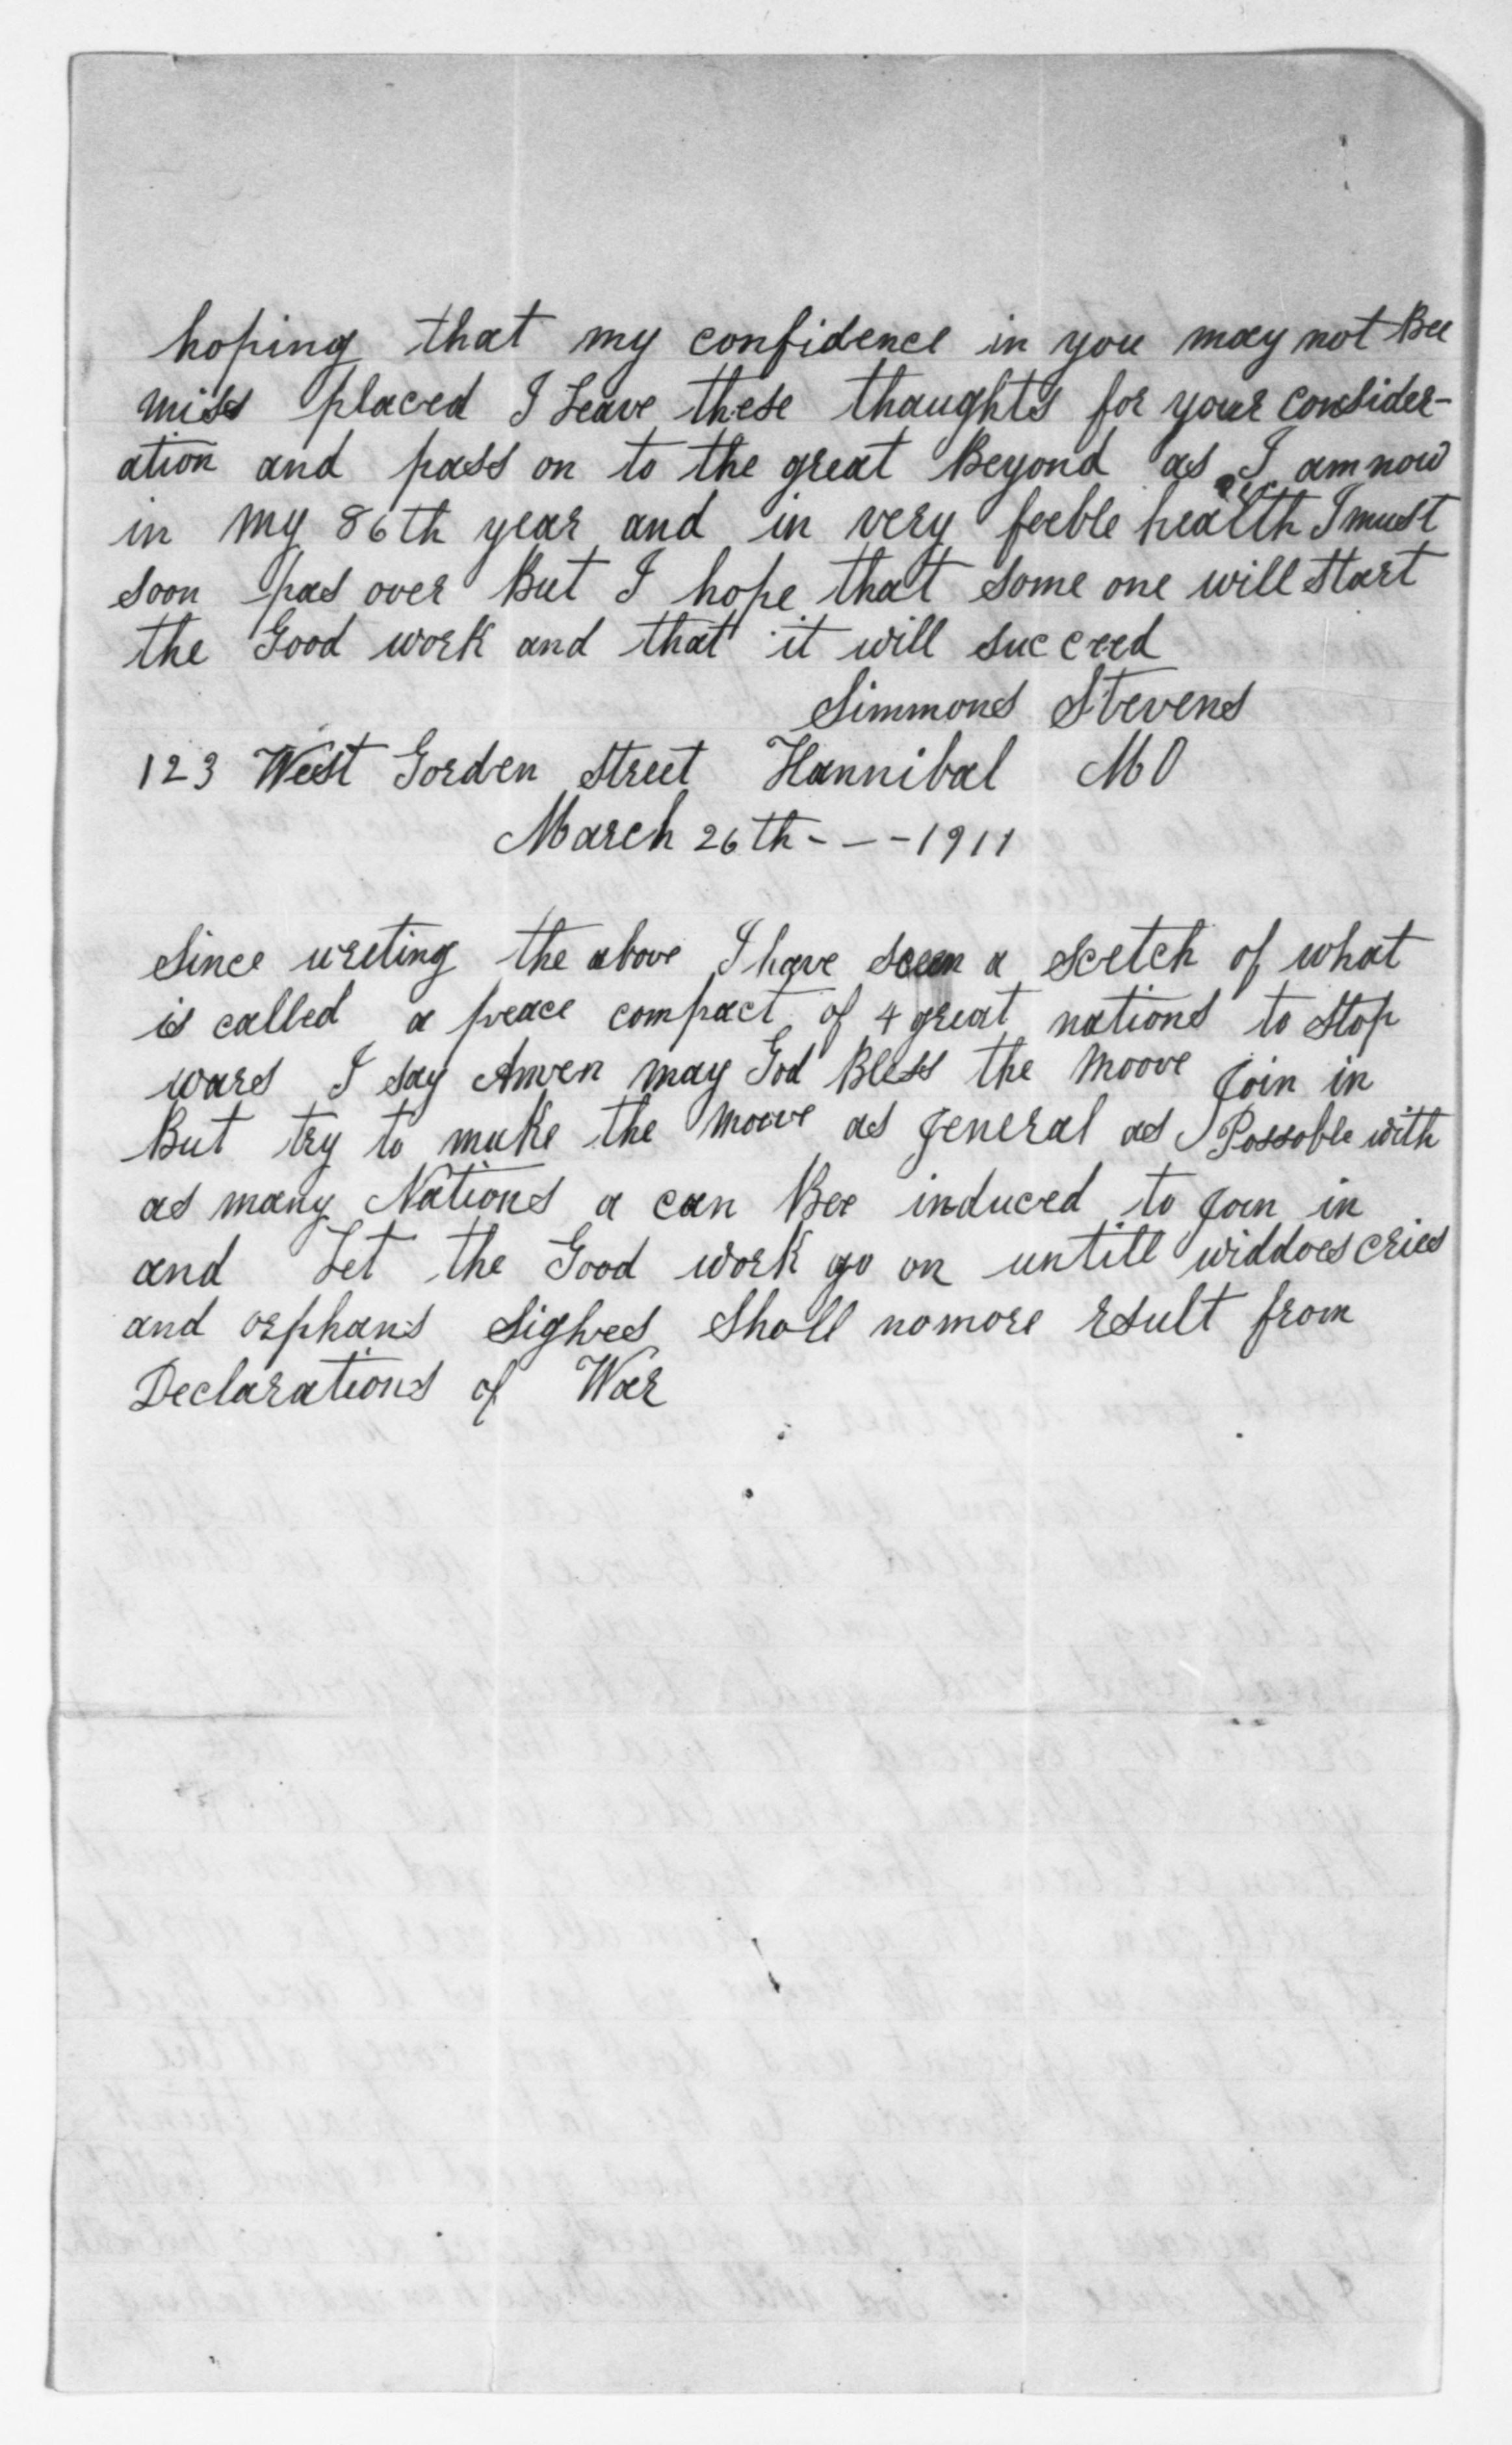 hoping that my confidence in you may not Bee
miss placed I Leave these thaughts for your consider-
ation and pass on to the great Beyond as I am now
in my 86th year and in very feeble health I must
soon pas over But I hope that some one will start
the Good work and that it will succeed
Simmons Stevens
123 West Gorden Street Hannibal MO
March 26th - - - 1911
Since wreting the above I have seen a scetch of what
is called a peace compact of 4 great nations to stop
wars I say Amen may God Bless the moove Join in
But try to make the moove as general as Possoble with
as many Nations a can Bee induced to Join in
and Let the Good work go on untill widdoes cries
and orphans sighes shall nomore result from
Declarations of War